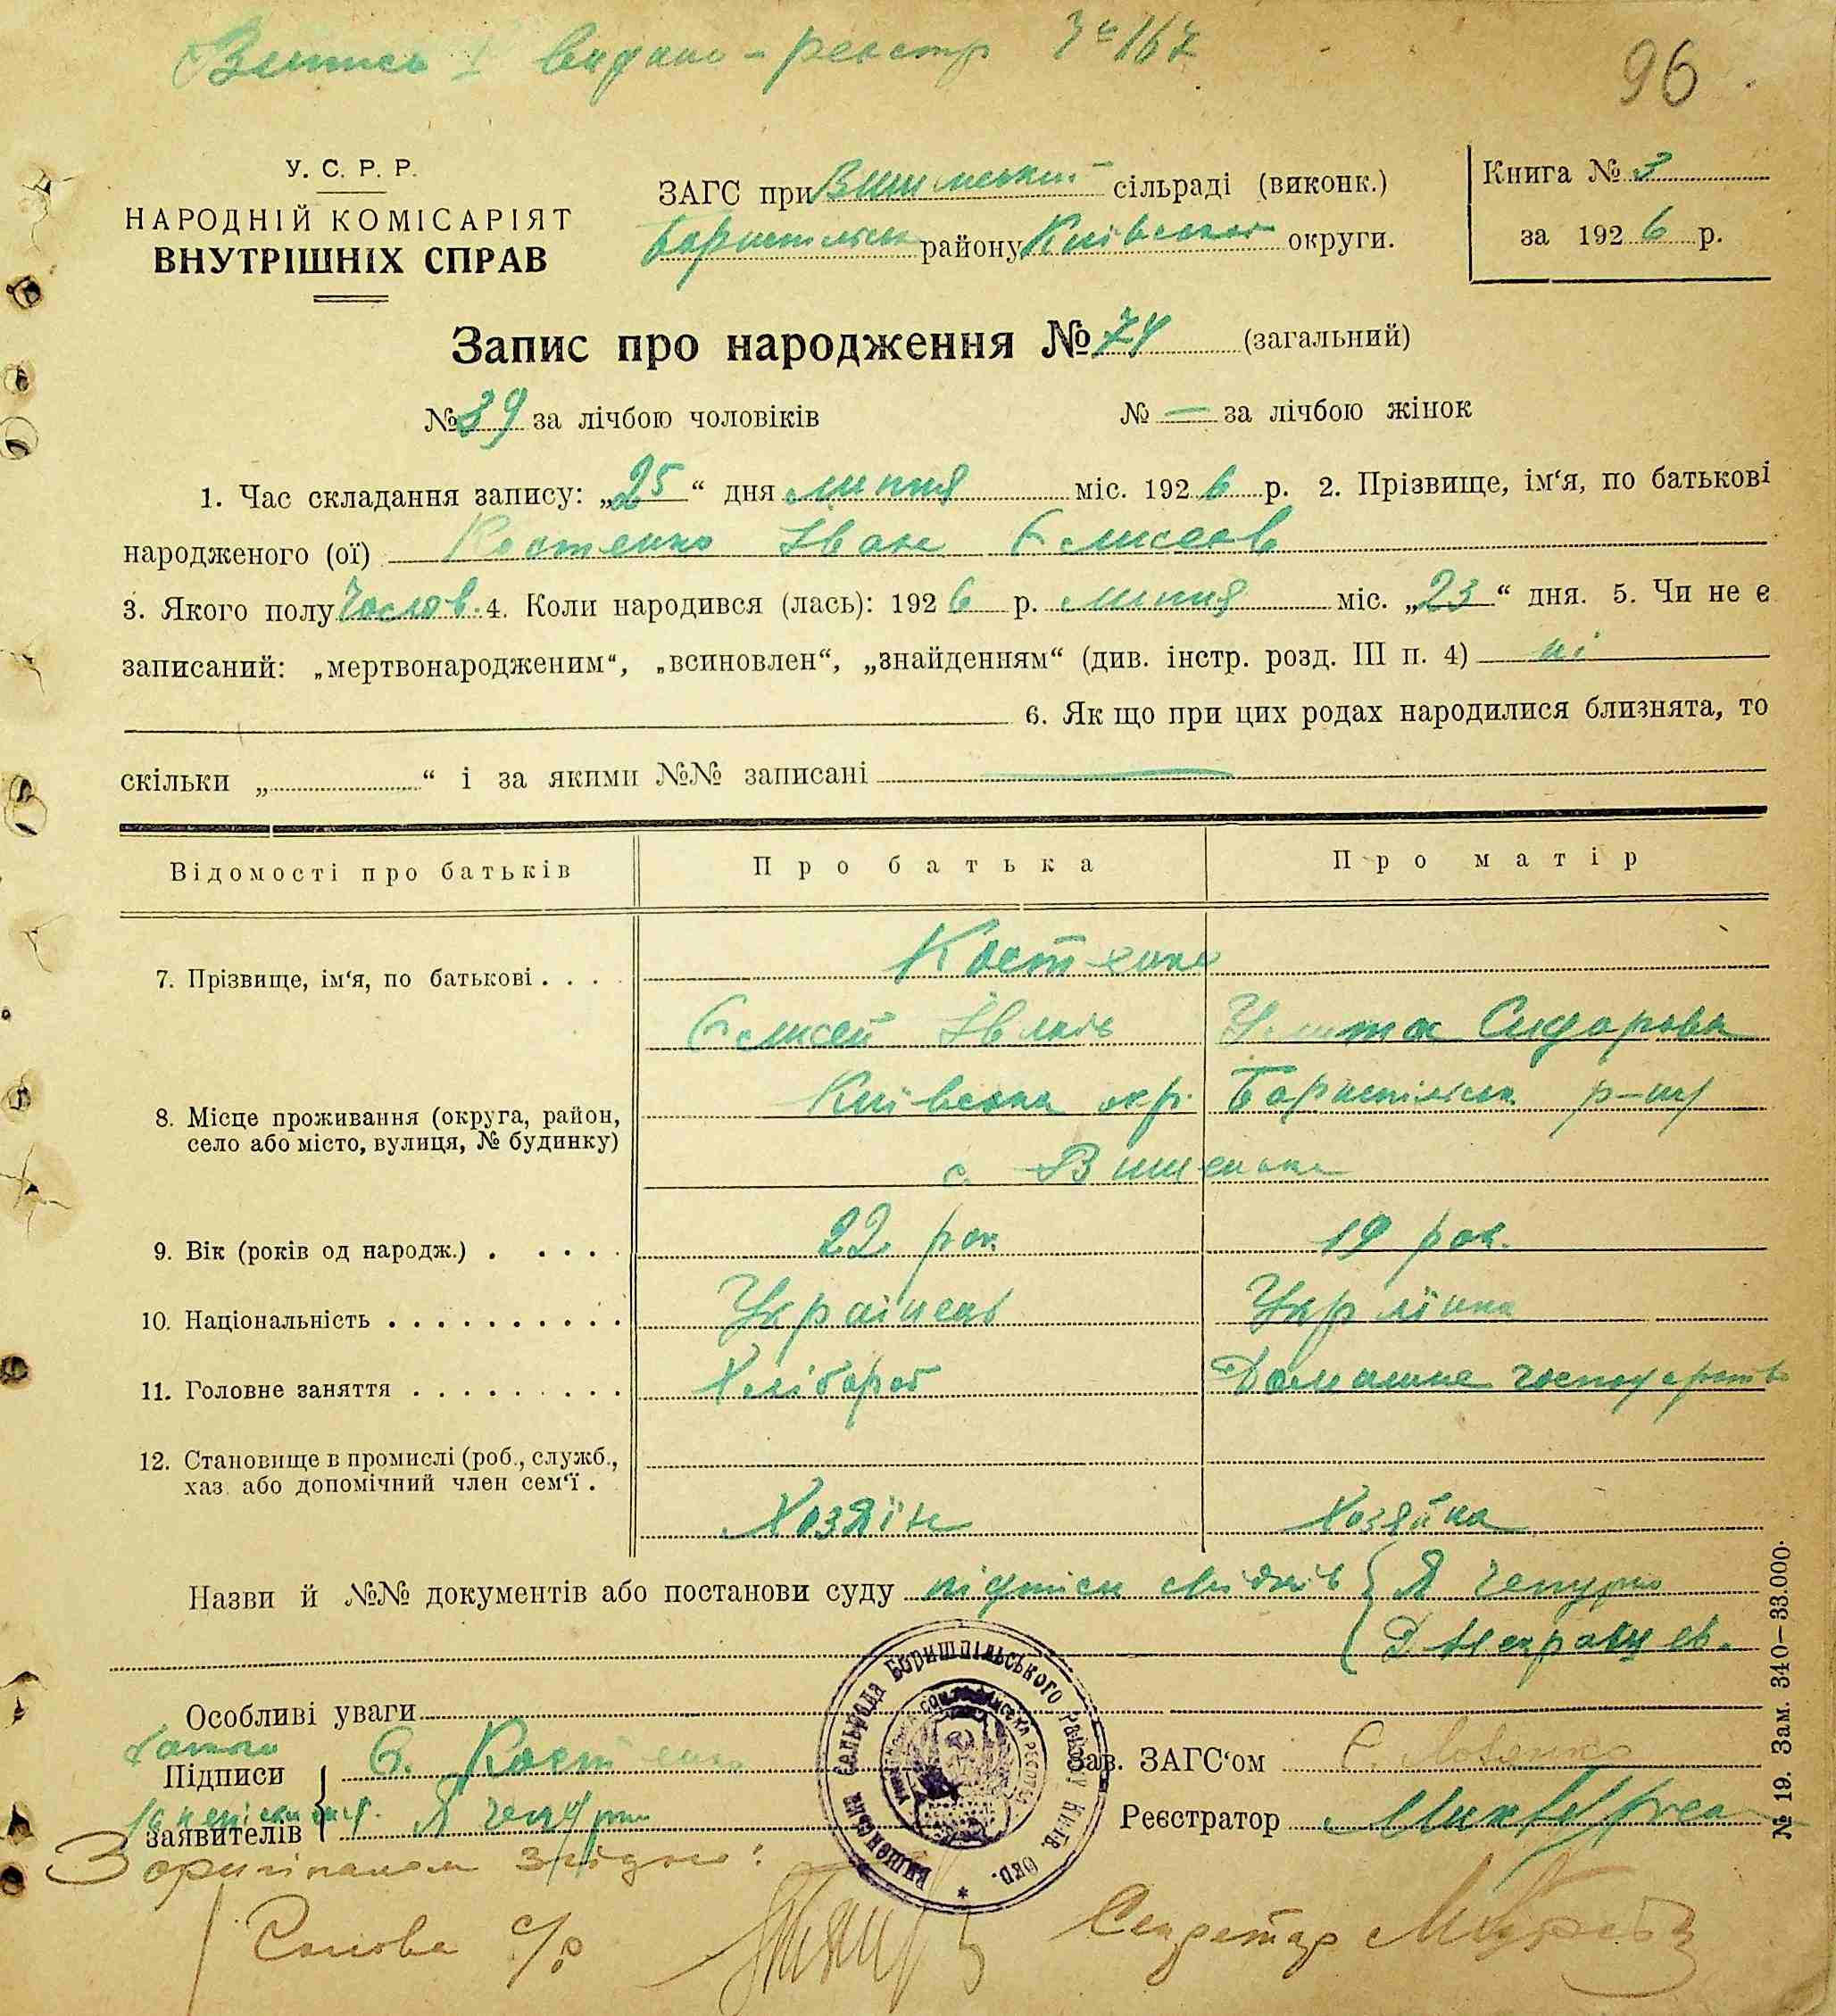 Випись I видано - реєстр № 167
96
У. С. Р. Р.
НАРОДНІЙ КОМІСАРІЯТ
ВНУТРІШНІХ СПРАВ
ЗАГС при Вишенській сільраді (виконк.)
Бориспільськ району Київської округи.
Книга № 3
за 1926 р.
Запис про народження № 74 (загальний)
№ 39 за лічбою чоловіків
№ — за лічбою жінок
1. Час складання запису: „25“ дня липня міс. 1926 р. 2. Прізвище, ім‘я, по батькові
народженого (ої) Костенко Іван Єлисеєв
3. Якого полу Чолов. 4. Коли народився (лась): 1926 р. липня міс. „23“ дня. 5. Чи не є
записаний: „мертвонародженим“, „всиновлен“, „знайденням“ (див. інстр. розд. III п. 4) ні
6. Як що при цих родах народилися близнята, то
скільки „ “ і за якими №№ записані —
Відомості про батьків
Про батька
Про матір
7. Прізвище, ім‘я, по батькові
Костенко
Єлисей Іванів
Сидорова
8. Місце проживання (округа, район,
село або місто, вулиця, № будинку)
Київська окр. Бориспільськ р-ну
с. Вишеньки
9. Вік (років од народж.)
22 рок
19 рок.
10. Національність
Українець
Українка
11. Головне заняття
Хлібороб
Домашнє господарство
12. Становище в промислі (роб., служб.,
хаз. або допомічний член сем‘ї
Хозяїн
Хозяйка
Назви й №№ документів або постанови суду підписи свідків Я Чепурно
Особливі уваги
Батько
Підписи
заявителів
Є. Костенко
Я Чепурно
Зав. ЗАГС‘ом
Реєстратор
Вишенська Сельрада Бориспільського Району Київ. Окр.
№ 19. Зам. 340—33.000.
З оригіналом згідно:
Голова с/р
Секретар